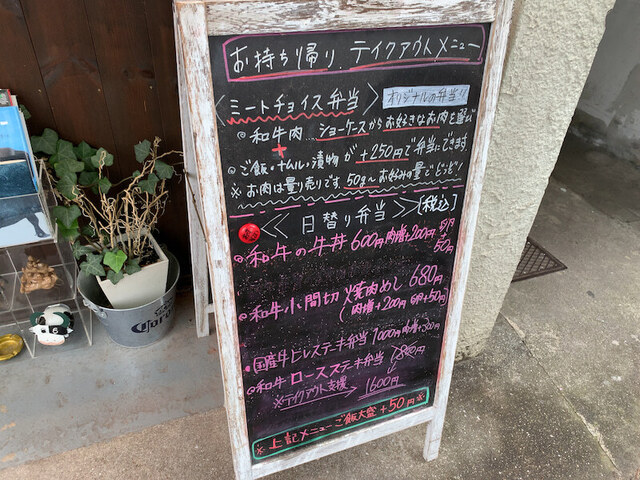 お持ち帰り テイクアウトメニュー
<ミートチョイス弁当> オリジナルの弁当!!
◎和牛肉…ショーケースからお好きなお肉を選び
+
◎ご飯・ナムル・漬物が+250円で弁当にできます
※お肉は量り売りです。50g〜お好みの量でどうぞ!
<<日替り弁当>>[税込]
◎和牛の牛丼 600円 肉増+200円
+50円
◎和牛小間切 焼肉めし 680円
(肉増+200円 卵+50円)
・国産牛ヒレステーキ弁当 1000円 肉増+300円
◎和牛ロースステーキ弁当 1800円
※テイクアウト支援→1600円
※上記メニューご飯大盛+50円※
Corona